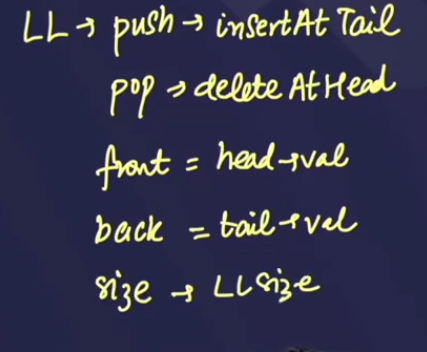 LL → push → insertAt Tail
pop → delete At Head
front = head→val
back = tail→val
size → LL size